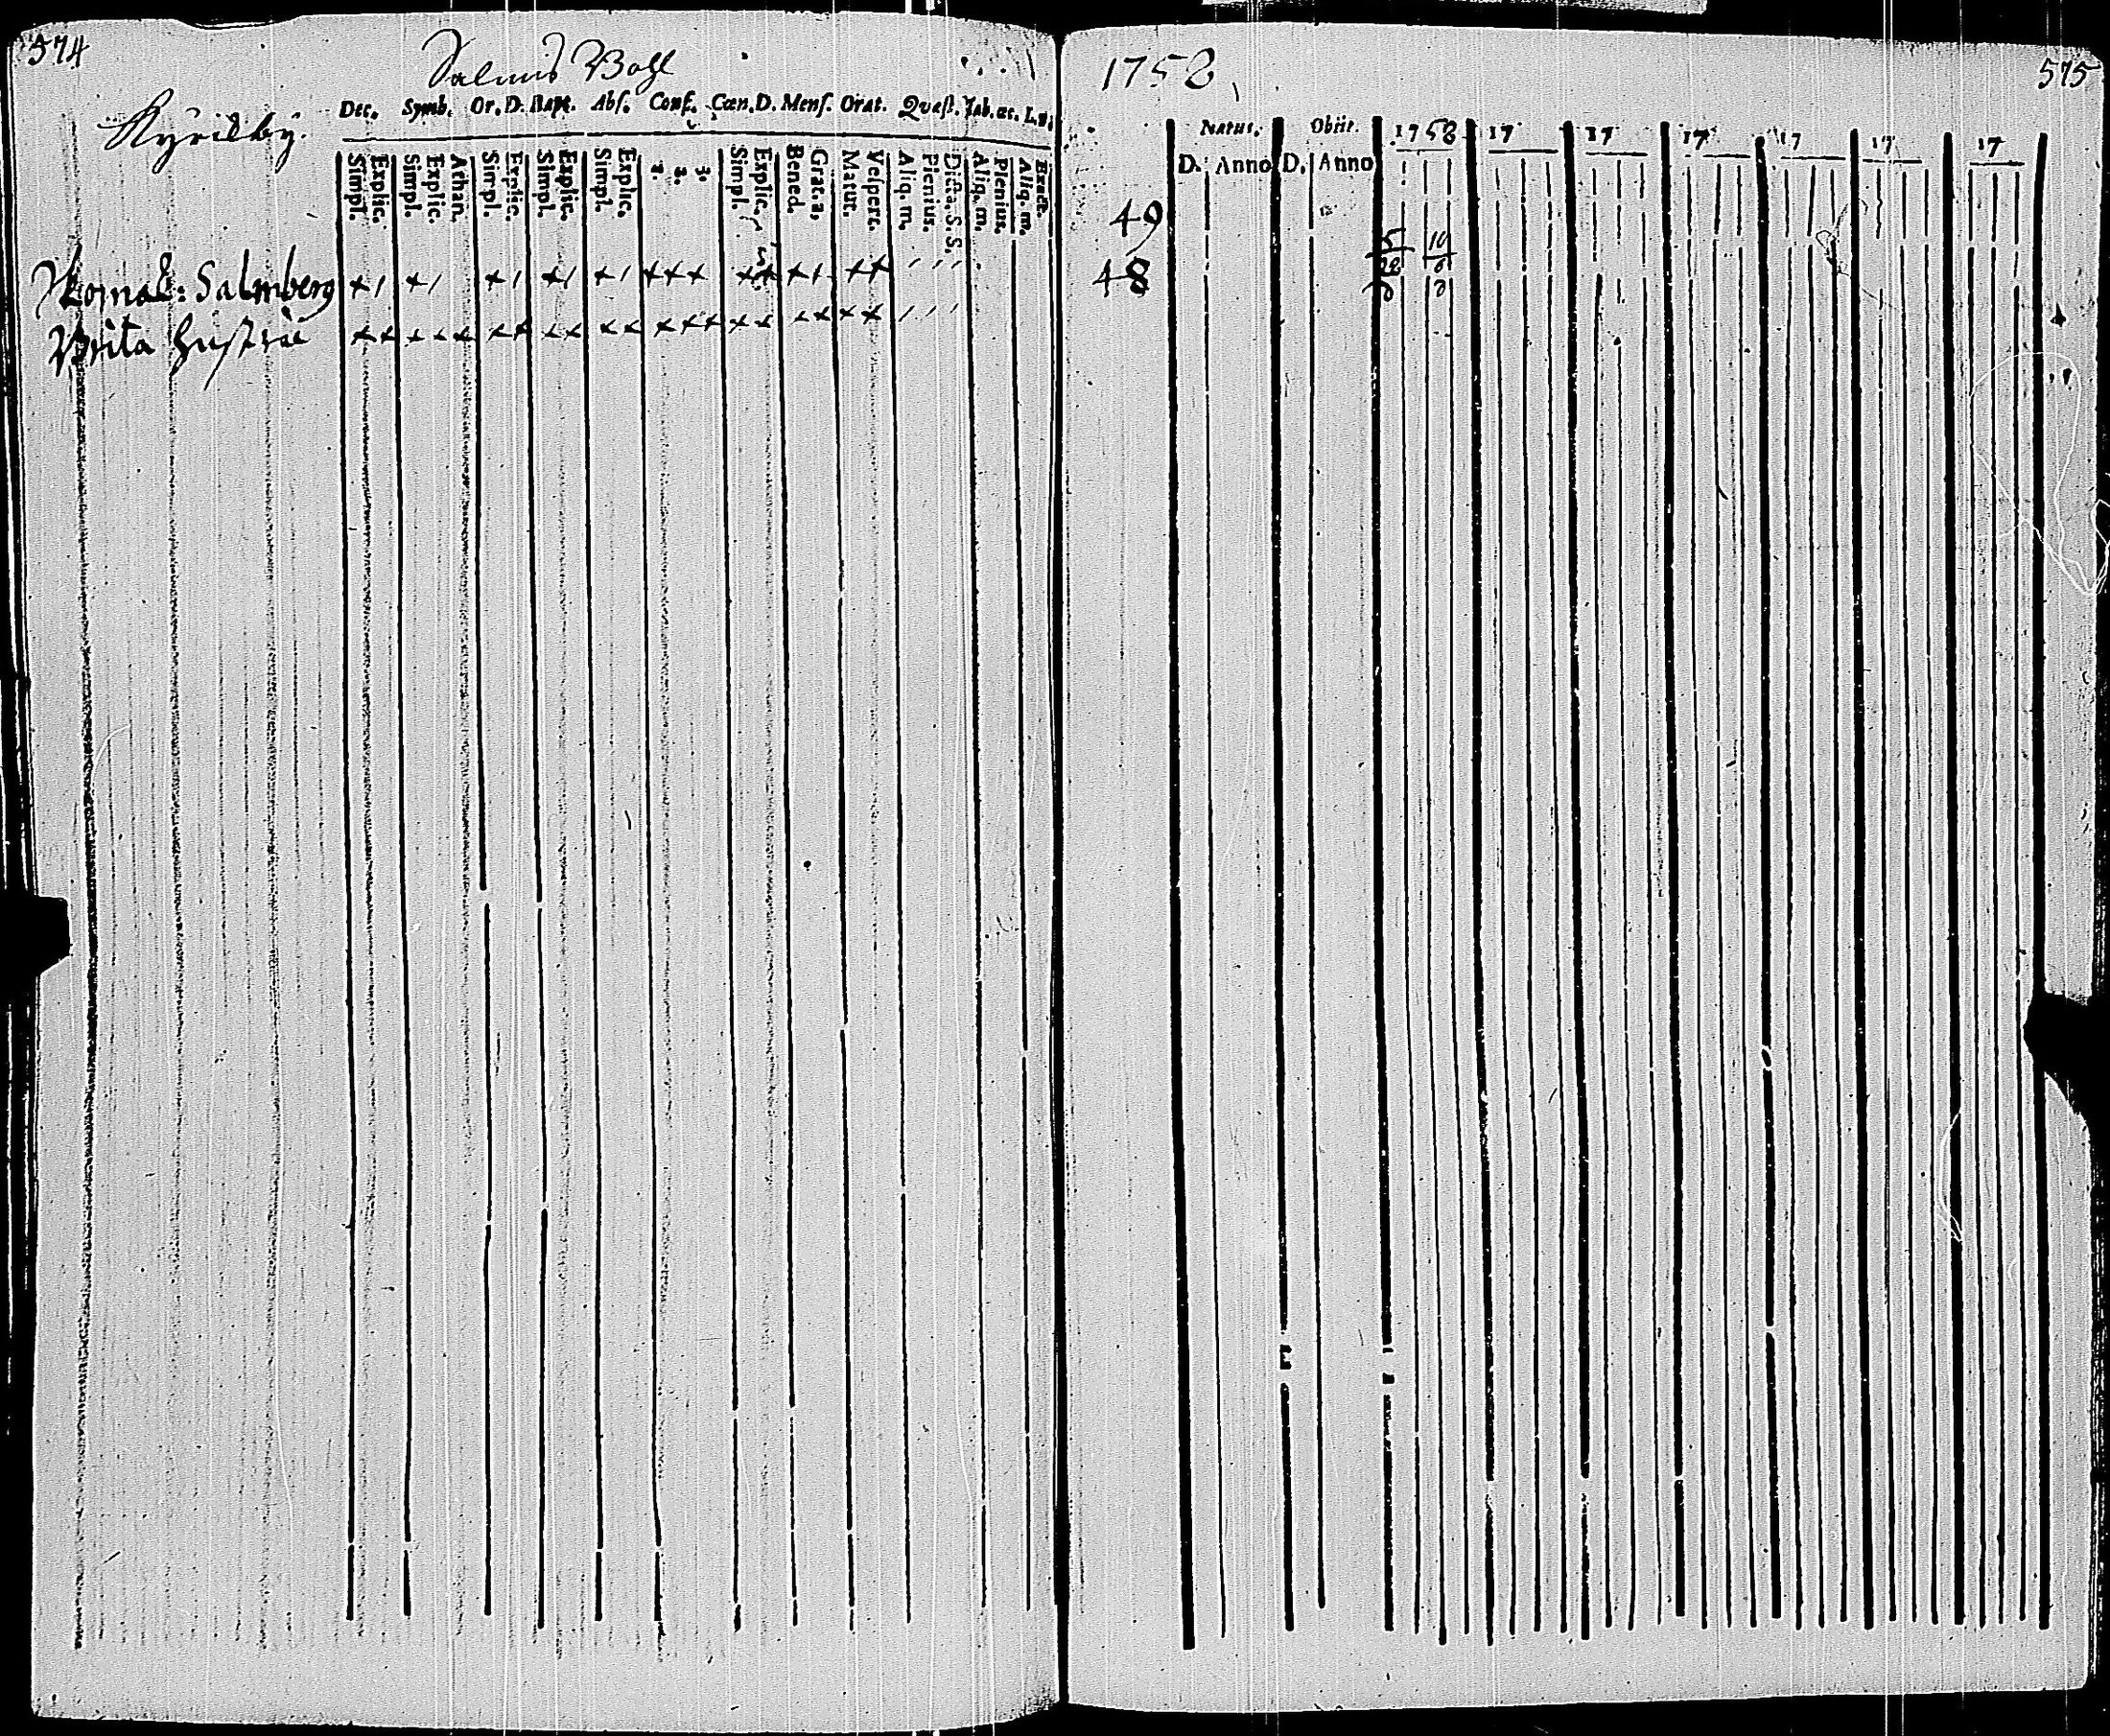 574
Salmis Bohl
Kyrilby.
Dec. Symb. Or. D. Bapt. Abſ. Conf. Cœn. D. Menſ. Orat. Quæſt. Tab. œc.
Simpl. Explic. Simpl. Explic. Athan. Simpl. Explic. Simpl. Explic. Simpl. Explic. 1. 2. 3. Simpl. Explic. Bened. Grat. a. Matut. Veſpert. Aliq. m. Plenius. Dicta. S. S. Aliq. m. Plenius. Aliq. m.
Thomas: Salmberg × / × / × / × / × / × × × × × × × × × / / /
Brita hustru × × × × × × × × × × × × × × × × × × × / / /
1758
575
Natus. Obiit. 1758 17 17 17 17 17 17
D. Anno D. Anno
49
48
10